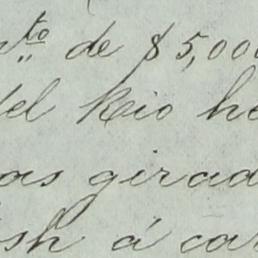 to de $5,000
del Rio he
as girad
sh á car